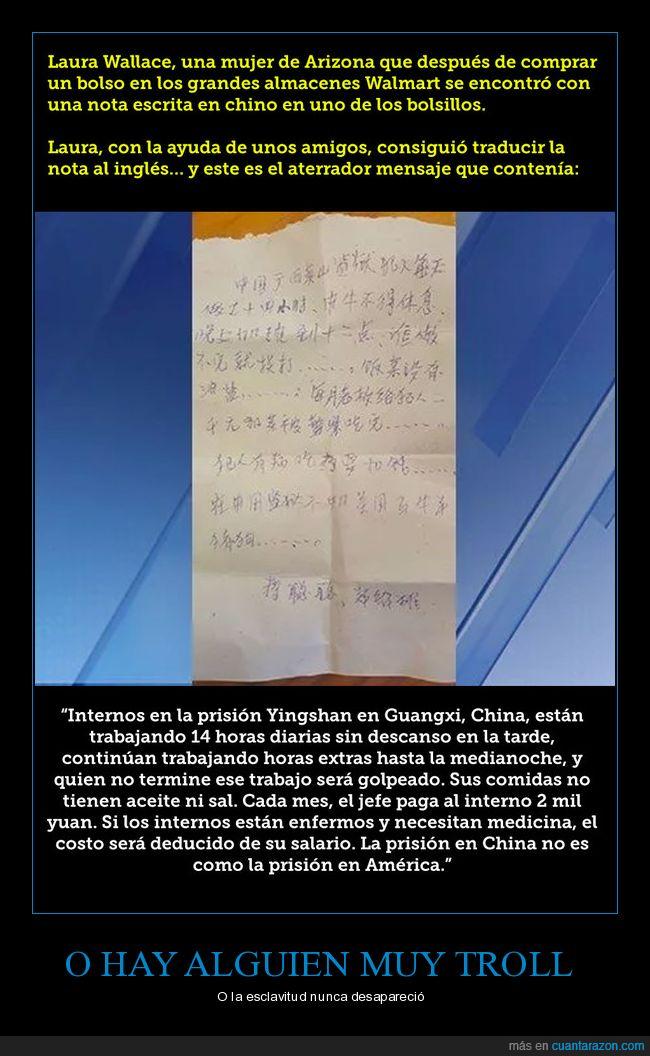 Laura Wallace, una mujer de Arizona que después de comprar
un bolso en los grandes almacenes Walmart se encontró con
una nota escrita en chino en uno de los bolsillos.
Laura, con la ayuda de unos amigos, consiguió traducir la
nota al inglés... y este es el aterrador mensaje que contenía:
中国广西英山监狱犯人每天
做工十四小时、中午不得休息、
晚上加班到十二点、谁做
不完就挨打……。饭菜没有
油盐……。每月老板给犯人
千元
犯人有病吃药要扣钱……
在中国监狱不如美国
“Internos en la prisión Yingshan en Guangxi, China, están
trabajando 14 horas diarias sin descanso en la tarde,
continúan trabajando horas extras hasta la medianoche, y
quien no termine ese trabajo será golpeado. Sus comidas no
tienen aceite ni sal. Cada mes, el jefe paga al interno 2 mil
yuan. Si los internos están enfermos y necesitan medicina, el
costo será deducido de su salario. La prisión en China no es
como la prisión en América.”
O HAY ALGUIEN MUY TROLL
O la esclavitud nunca desapareció
más en cuantarazon.com